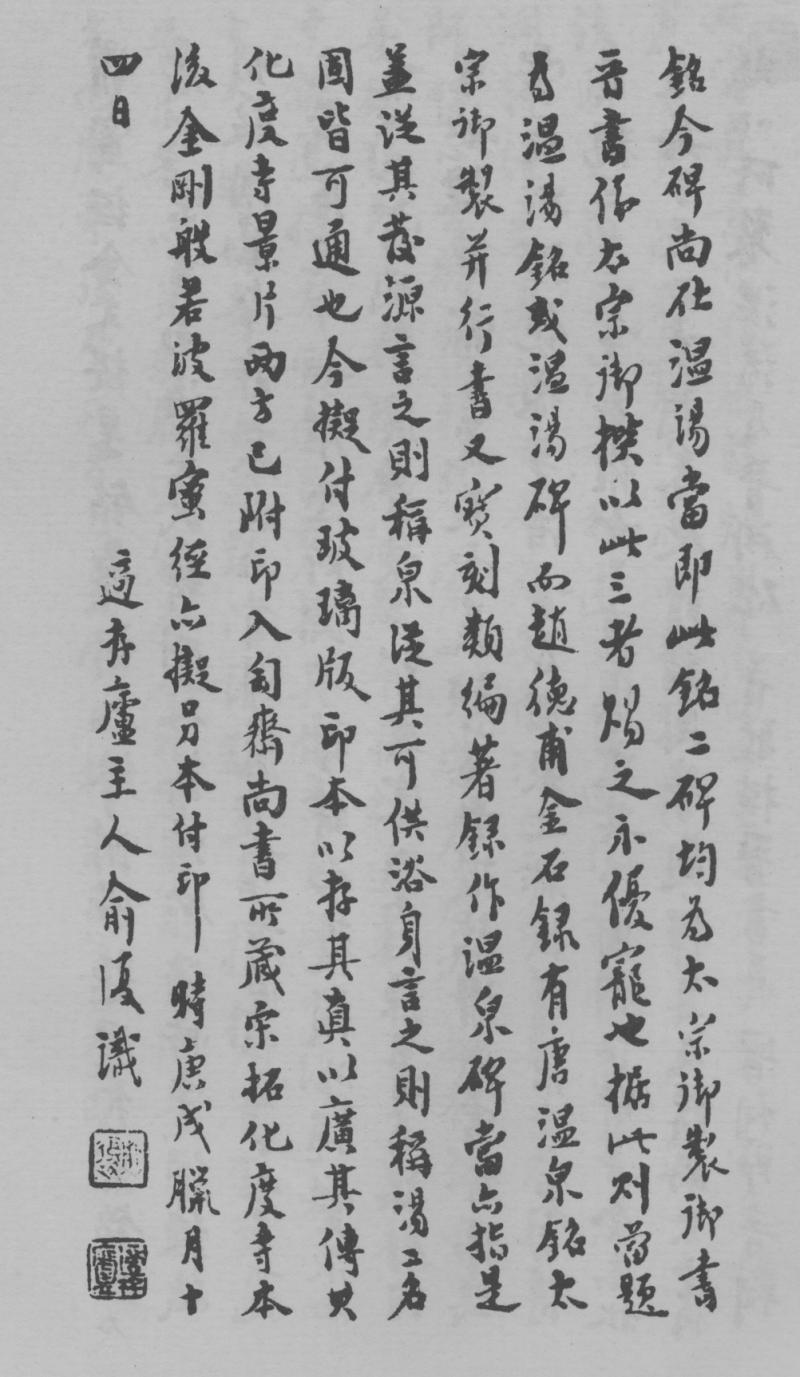 銘今碑尚在温湯當即此銘二碑均為太宗御製御書
晉書係太宗御撰以此三者賜之示優寵也據此則當題
為温湯銘或温湯碑而趙德甫金石録有唐温泉銘太
宗御製并行書又寶刻類編著録作温泉碑當亦指是
蓋從其發源言之則稱泉從其可供浴身言之則稱湯二名
固皆可通也今擬付玻璃版印本以存其真以廣其傳其
化度寺景片兩方已附印入匋齋尚書所藏宋拓化度寺本
後金剛般若波羅蜜經亦擬另本付印 時庚戌臘月十
四日
適存廬主人俞復識